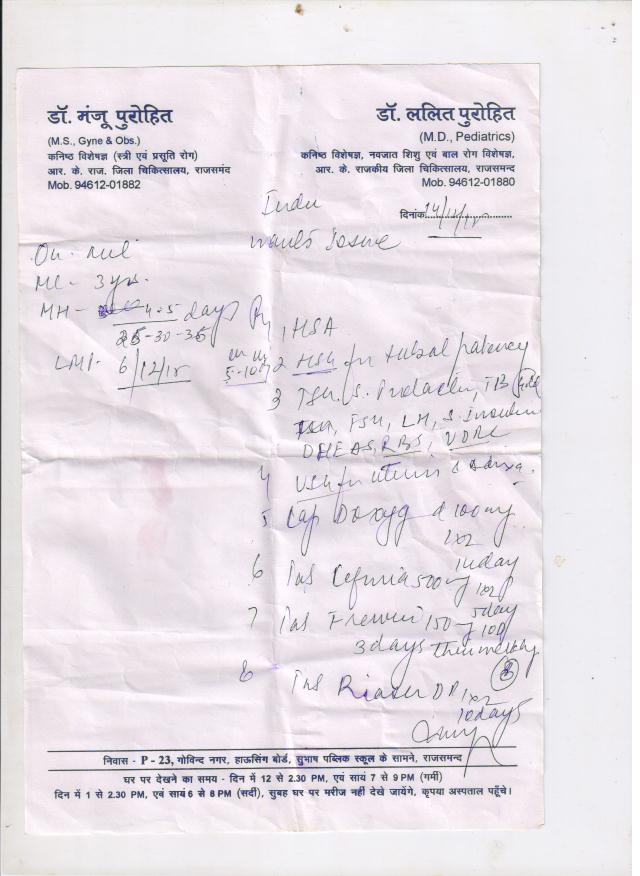 डॉ. मंजू पुरोहित
(M.S., Gyne & Obs.)
कनिष्ठ विशेषज्ञ (स्त्री एवं प्रसूति रोग)
आर. के. राज. जिला चिकित्सालय, राजसमंद
Mob. 94612-01882
डॉ. ललित पुरोहित
(M.D., Pediatrics)
कनिष्ठ विशेषज्ञ, नवजात शिशु एवं बाल रोग विशेषज्ञ,
आर. के. राजकीय जिला चिकित्सालय, राजसमन्द
Mob. 94612-01880
दिनांक
Indu
wants Issue
ML - 3 yr.
MH - 4-5 days
25-30-35
LMP 6/12/15
1 HSA
2 HSG for tubal patency
3 TSH, S. Prolactin, TB
FSH, LH, S. Insulin
DHEAS, RBS, VDRL
4 USG for uterus & adnexa.
5 Cap Doxy 100 mg
1x2
14 day
6 Tab 500 mg 1x2
5 day
7 Tab 150 mg
3 days then weekly
8 Tab DP 1x2
10 days
निवास - P - 23, गोविन्द नगर, हाऊसिंग बोर्ड, सुभाष पब्लिक स्कूल के सामने, राजसमन्द
घर पर देखने का समय - दिन में 12 से 2.30 PM, एवं सायं 7 से 9 PM (गर्मी)
दिन में 1 से 2.30 PM, एवं सायं 6 से 8 PM (सर्दी), सुबह घर पर मरीज नहीं देखे जायेंगे, कृपया अस्पताल पहूँचे।